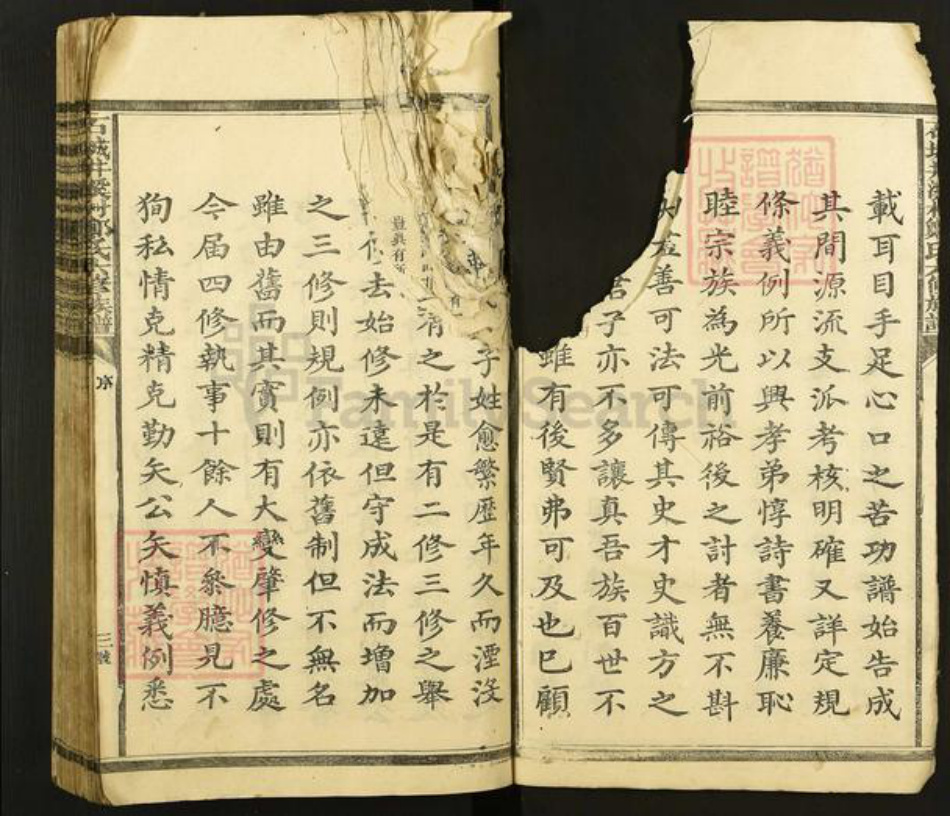 載耳目手足心口之苦功譜始告成
其間源流支派考核明確又詳定規
條義例所以興孝弟惇詩書養廉恥
睦宗族為光前裕後之討者無不斟
善可法可傳其史才史識方之
君子亦不多讓真吾族百世不
雖有後賢弗可及也已顧
子姓愈繁歷年久而湮沒
清之於是有二修三修之舉
去始修未遠但守成法而增加
之三修則規例亦依舊制但不無名
雖由舊而其實則有大變肇修之處
今届四修執事十餘人不參臆見不
狥私情克精克勤矣公矣慎義例悉
石城井溪村鄭氏六修族譜
序
三號
FamilySearch